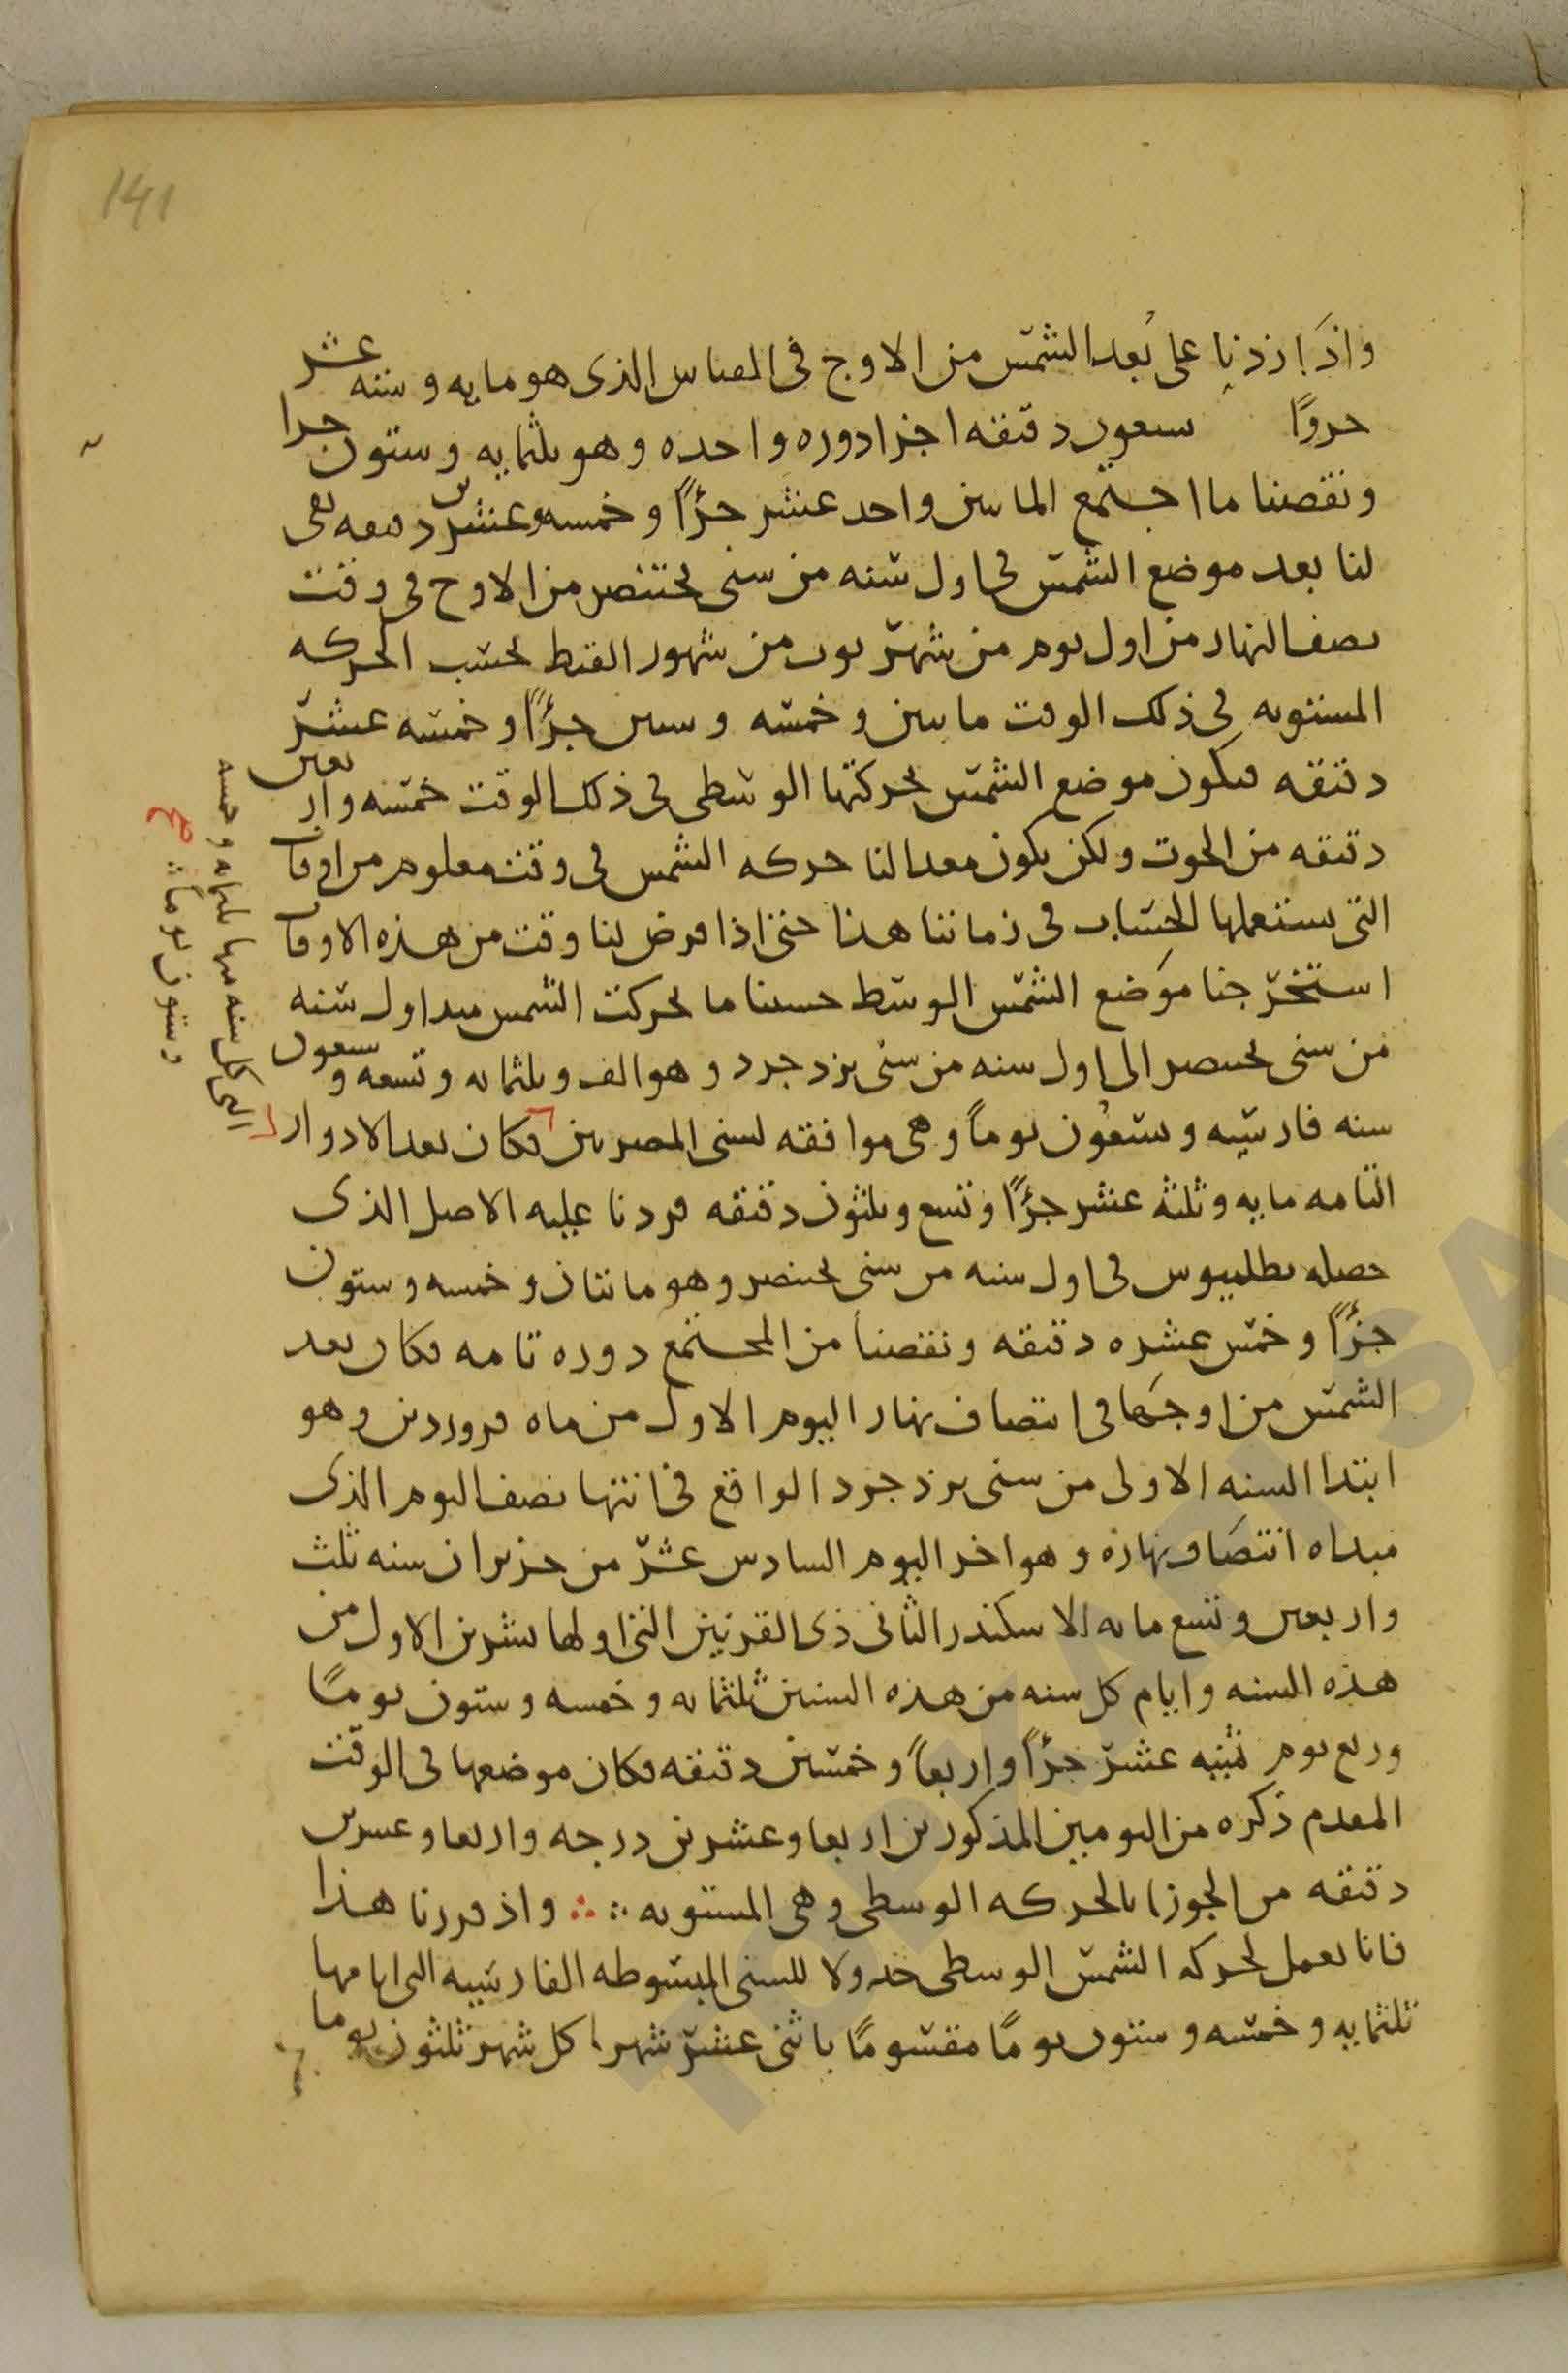 141
واذا زدنا على بُعد الشمس من الاوج فى القياس الذى هو مايه وسته عشر
جزوًا سعون دقيقه اجزا دوره واحده وهو ثلثمايه وستون جزا
ونقصنا ما اجتمع المايتين واحد عشر جزًا وخمسه وعشرين دقيقه بقى
لنا بعد موضع الشمس فى اول سنه من سنى بختنصر من الاوج فى وقت
نصف النهار من اول يوم من شهر توت من شهور القبط بحسب الحركه
المستويه فى ذلك الوقت مايتين وخمسه وستين جزًا وخمسه عشر
دقيقه فيكون موضع الشمس بحركتها الوسطى فى ذلك الوقت خمسه واربعين
دقيقه من الحوت ولكن يكون معدا لنا حركه الشمس فى وقت معلوم من اوقات
التى يستعملها الحساب فى زماننا هذا حتى اذا فرض لنا وقت من هذه الاوقات
استخرجنا موضع الشمس الوسط حسبنا ما تحركت الشمس مبدا اول سنه
من سنى بختنصر الى اول سنه من سنى يزدجرد وهو الف وثلثمايه وتسعه وسعون
سنه فارسيه وسعون يومًا وهى موافقه لسنى المصريين فكان بعد الادوار
التامه مايه وثلثه عشر جزًا وتسع وثلثون دقيقه فزدنا عليه الاصل الذى
حصله بطلميوس فى اول سنه من سنى بختنصر وهو مائتان وخمسه وستون
جزًا وخمس عشره دقيقه ونقصنا من المجتمع دوره تامه فكان بعد
الشمس من اوجها فى انتصاف نهار اليوم الاول من ماه فروردين وهو
ابتدا السنه الاولى من سنى يزدجرد الواقع فى انتها نصف اليوم الذى
مبداه انتصاف نهاره وهو اخر اليوم السادس عشر من حزيران سنه ثلث
واربعين وتسع مايه للاسكندر الثانى ذى القرنين التى اولها تشرين الاول من
هذه السنه وايام كل سنه من هذه السنين ثلثمايه وخمسه وستون يومًا
وربع يوم ثمنيه عشر جزًا واربعًا وخمسين دقيقه فكان موضعها فى الوقت
المقدم ذكره من اليومين المذكورين اربعا وعشرين درجه واربعا وعشرين
دقيقه من الجوزا بالحركه الوسطى وهى المستويه ∴ ∴ واذ قررنا هذا
فانا نعمل لحركه الشمس الوسطى جدولا للسنى المبسوطه الفارسيه التى ايامها
ثلثمايه وخمسه وستون يومًا مقسومًا باثنى عشر شهرا كل شهر ثلثون يوما
التى كل سنه منها ثلثمايه وخمسه
وستون يوما ∴ صح